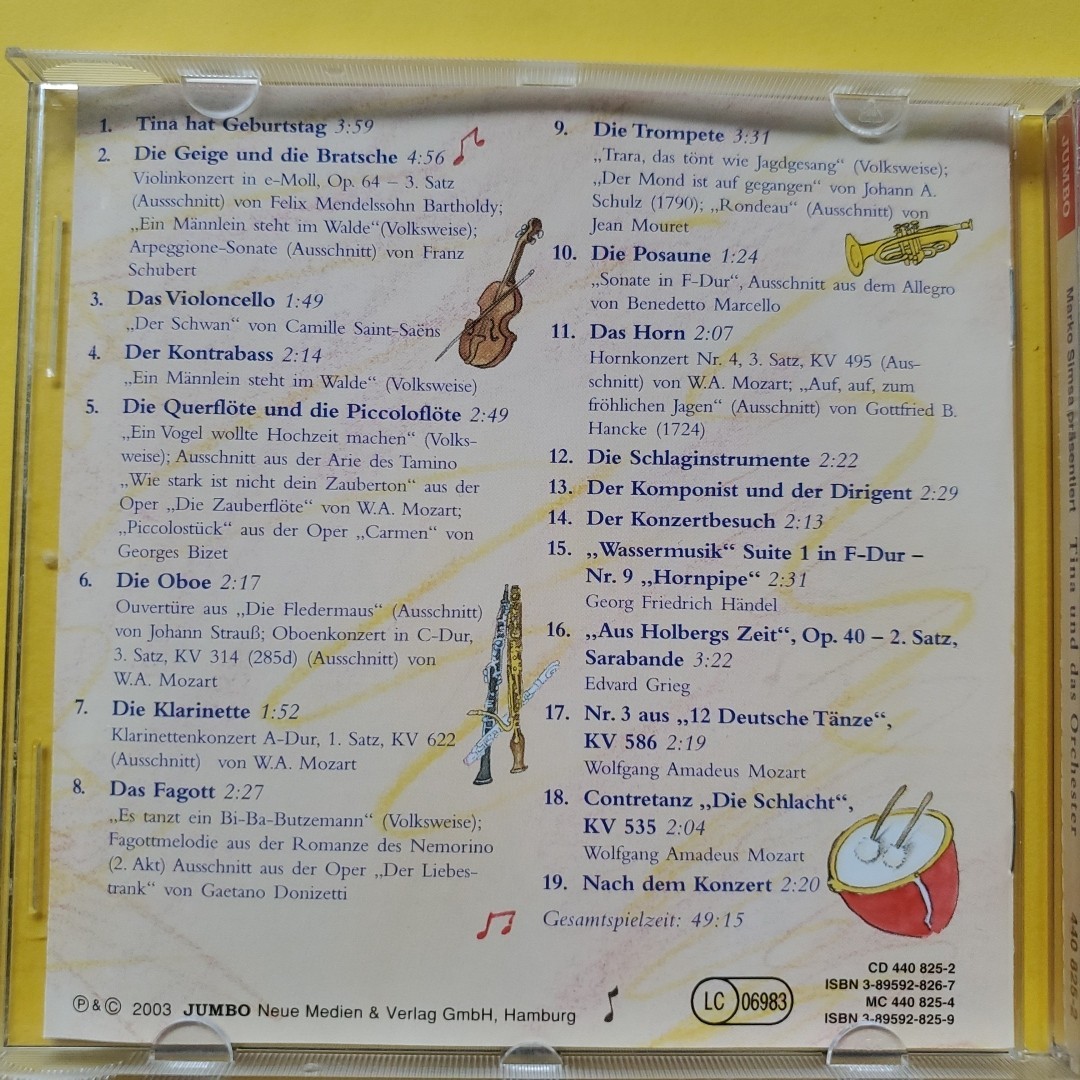 1. Tina hat Geburtstag 3:59
2. Die Geige und die Bratsche 4:56
Violinkonzert in e-Moll, Op. 64 – 3. Satz
(Aussschnitt) von Felix Mendelssohn Bartholdy;
„Ein Männlein steht im Walde“(Volksweise);
Arpeggione-Sonate (Ausschnitt) von Franz
Schubert
3. Das Violoncello 1:49
„Der Schwan“ von Camille Saint-Saëns
4. Der Kontrabass 2:14
„Ein Männlein steht im Walde“ (Volksweise)
5. Die Querflöte und die Piccoloflöte 2:49
„Ein Vogel wollte Hochzeit machen“ (Volks-
weise); Ausschnitt aus der Arie des Tamino
„Wie stark ist nicht dein Zauberton“ aus der
Oper „Die Zauberflöte“ von W.A. Mozart;
„Piccolostück“ aus der Oper „Carmen“ von
Georges Bizet
6. Die Oboe 2:17
Ouvertüre aus „Die Fledermaus“ (Ausschnitt)
von Johann Strauß; Oboenkonzert in C-Dur,
3. Satz, KV 314 (285d) (Ausschnitt) von
W.A. Mozart
7. Die Klarinette 1:52
Klarinettenkonzert A-Dur, 1. Satz, KV 622
(Ausschnitt) von W.A. Mozart
8. Das Fagott 2:27
„Es tanzt ein Bi-Ba-Butzemann“ (Volksweise);
Fagottmelodie aus der Romanze des Nemorino
(2. Akt) Ausschnitt aus der Oper „Der Liebes-
trank“ von Gaetano Donizetti
9. Die Trompete 3:31
„Trara, das tönt wie Jagdgesang“ (Volksweise);
„Der Mond ist auf gegangen“ von Johann A.
Schulz (1790); „Rondeau“ (Ausschnitt) von
Jean Mouret
10. Die Posaune 1:24
„Sonate in F-Dur“, Ausschnitt aus dem Allegro
von Benedetto Marcello
11. Das Horn 2:07
Hornkonzert Nr. 4, 3. Satz, KV 495 (Aus-
schnitt) von W.A. Mozart; „Auf, auf, zum
fröhlichen Jagen“ (Ausschnitt) von Gottfried B.
Hancke (1724)
12. Die Schlaginstrumente 2:22
13. Der Komponist und der Dirigent 2:29
14. Der Konzertbesuch 2:13
15. „Wassermusik“ Suite 1 in F-Dur –
Nr. 9 „Hornpipe“ 2:31
Georg Friedrich Händel
16. „Aus Holbergs Zeit“, Op. 40 – 2. Satz,
Sarabande 3:22
Edvard Grieg
17. Nr. 3 aus „12 Deutsche Tänze“,
KV 586 2:19
Wolfgang Amadeus Mozart
18. Contretanz „Die Schlacht“,
KV 535 2:04
Wolfgang Amadeus Mozart
19. Nach dem Konzert 2:20
Gesamtspielzeit: 49:15
CD 440 825-2
ISBN 3-89592-826-7
MC 440 825-4
ISBN 3-89592-825-9
LC 06983
℗ & © 2003 JUMBO Neue Medien & Verlag GmbH, Hamburg
JUMBO
Marko Simsa präsentiert Tina und das Orchester 440 825-2